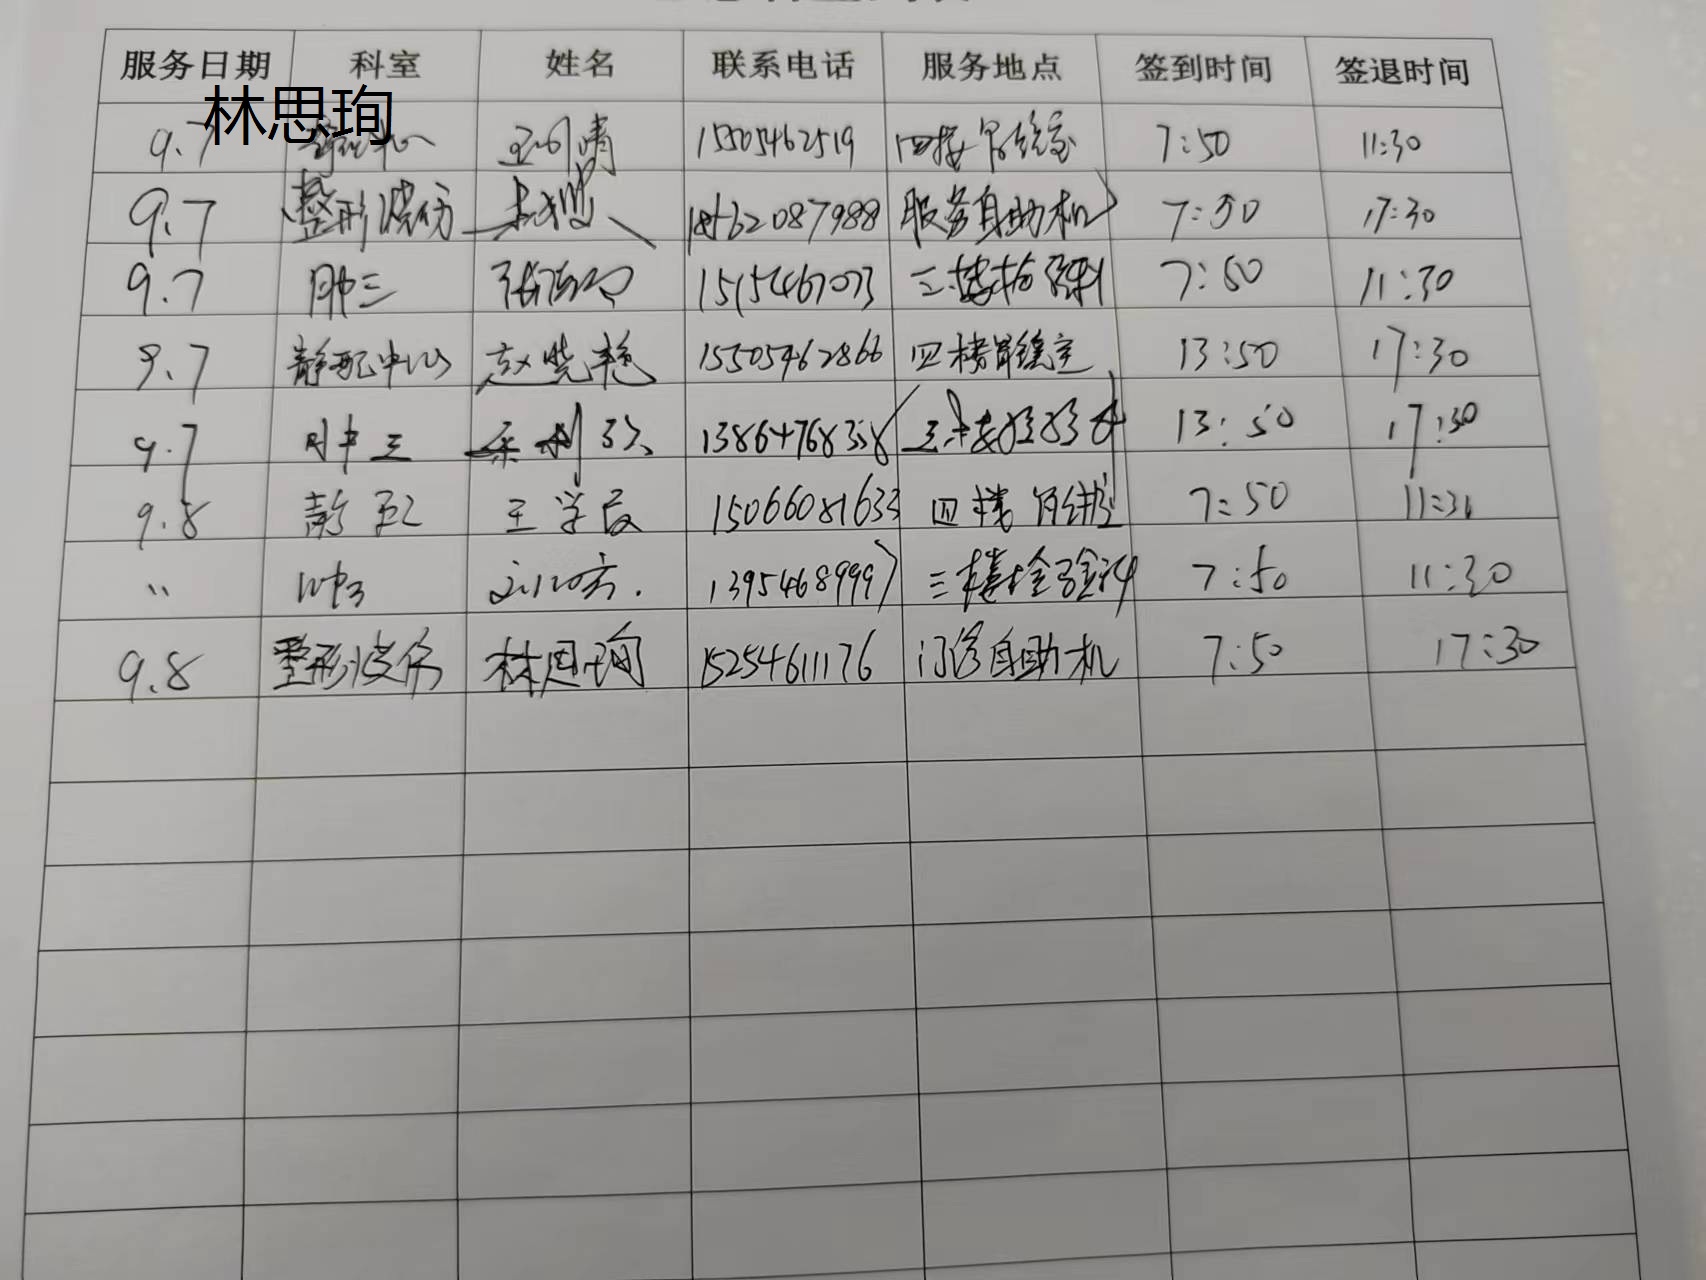 服务日期 科室 姓名 联系电话 服务地点 签到时间 签退时间
林思珣
9.7 15505462519 四楼胃镜室 7:50 11:30
9.7 整形烧伤 18562087988 服务自助机 7:50 17:30
9.7 肿三 三楼检验科 7:50 11:30
9.7 静配中心 赵晓艳 15505462866 四楼胃镜室 13:50 17:30
9.7 肿三 三楼检验科 13:50 17:30
9.8 王学 15066081633 四楼胃镜室 7:50 11:30
〃 13954689997 三楼检验科 7:50 11:30
9.8 整形烧伤 林思珣 15254611176 门诊自助机 7:50 17:30